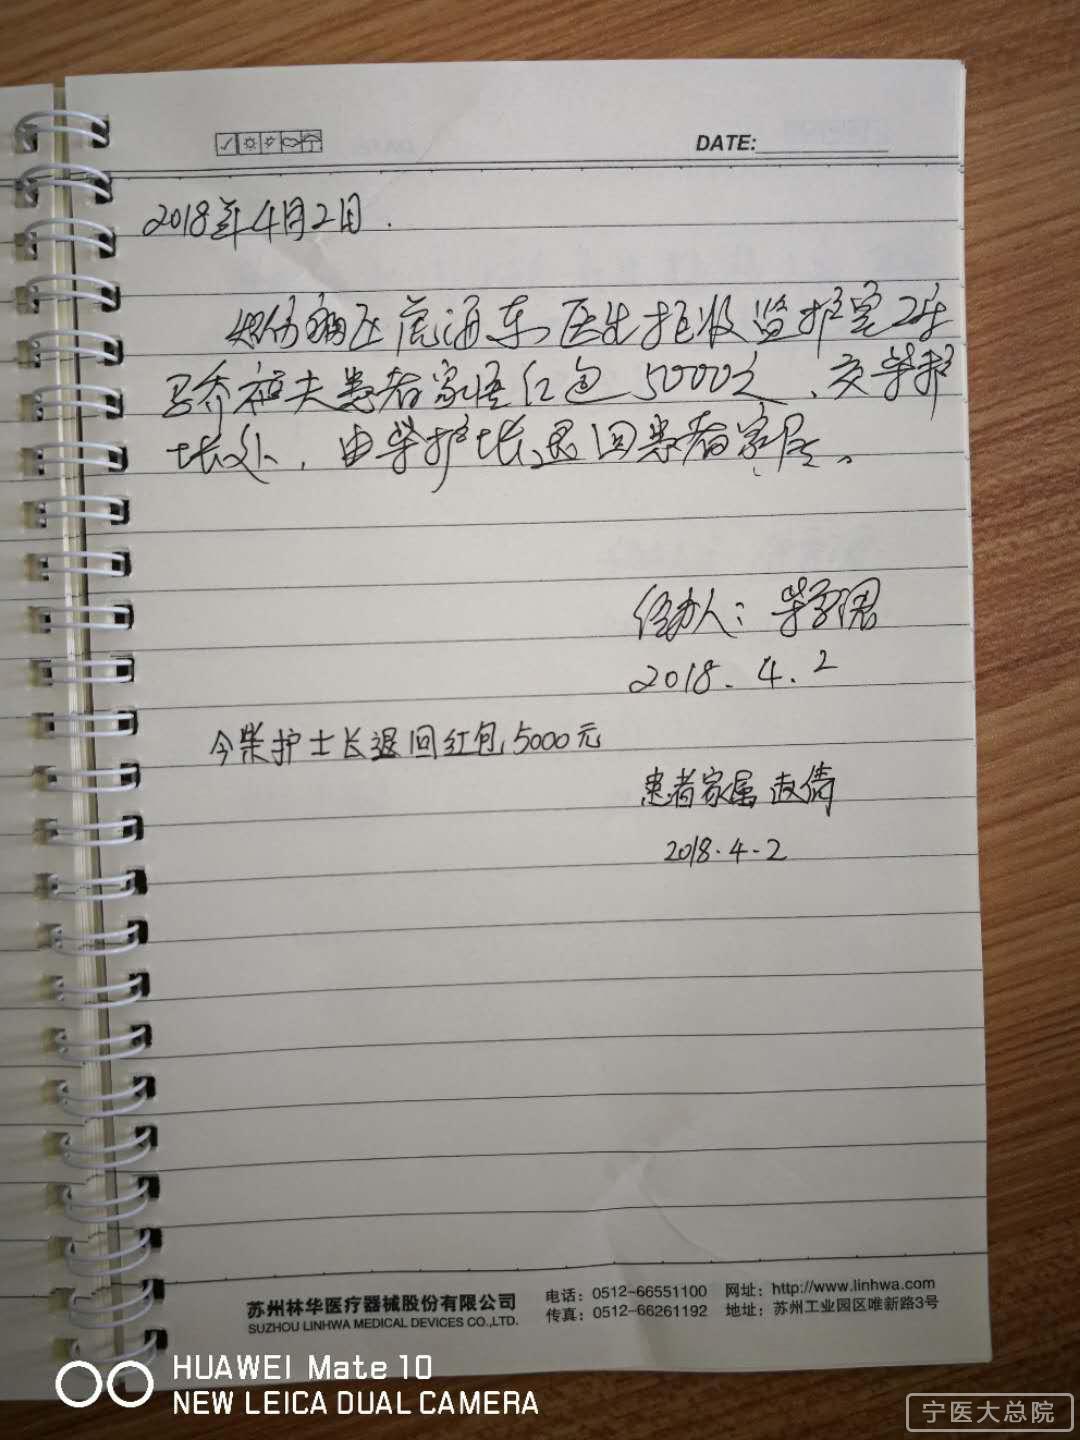 DATE:
2018年4月2日.
烧伤病区 海东医生拒收监护室2床
乔 夫患者家属红包5000元、交柴护
长处，由柴护长退回患者家属。
经办人：柴
2018.4.2
今柴护士长退回红包5000元
患者家属 赵倩
2018.4.2
苏州林华医疗器械股份有限公司
SUZHOU LINHWA MEDICAL DEVICES CO.,LTD.
电话：0512-66551100 网址：http://www.linhwa.com
传真：0512-66261192 地址：苏州工业园区唯新路3号
HUAWEI Mate 10
NEW LEICA DUAL CAMERA
宁医大总院